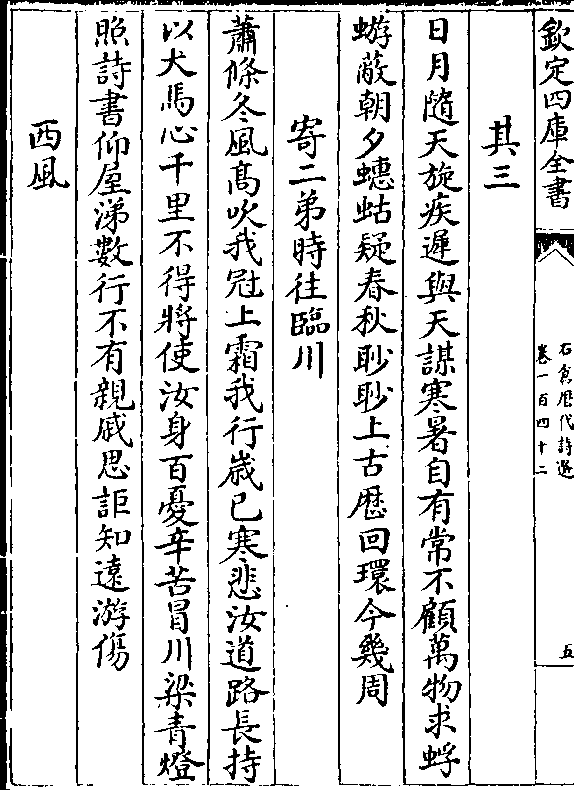 欽定四庫全書
石倉歷代詩選
卷一百四十二
五
其三
日月隨天旋疾遲與天謀寒暑自有常不顧萬物求蜉
蝣蔽朝夕蟪蛄疑春秋眇眇上古歷回環今幾周
寄二弟時往臨川
蕭條冬風高吹我冠上霜我行歲已寒悲汝道路長持
以犬馬心千里不得將使汝身百憂辛苦冒川梁青燈
照詩書仰屋涕數行不有親戚思詎知遠游傷
西風